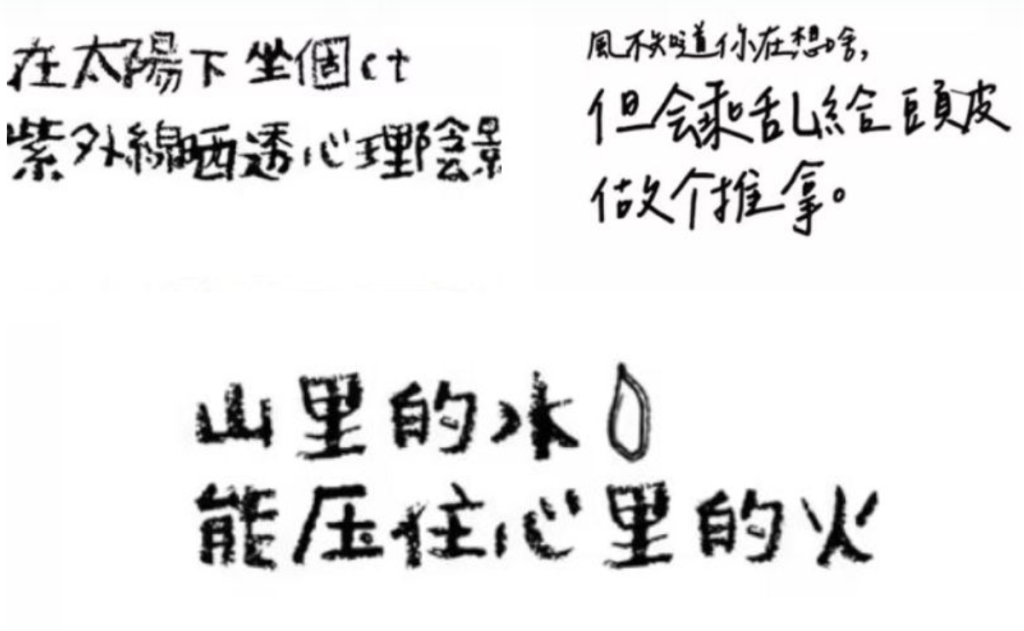 在太陽下坐個ct
紫外線晒透心理陰影
風不知道你在想啥,
但会乘乱給頭皮
做个推拿。
山里的水
能压住心里的火